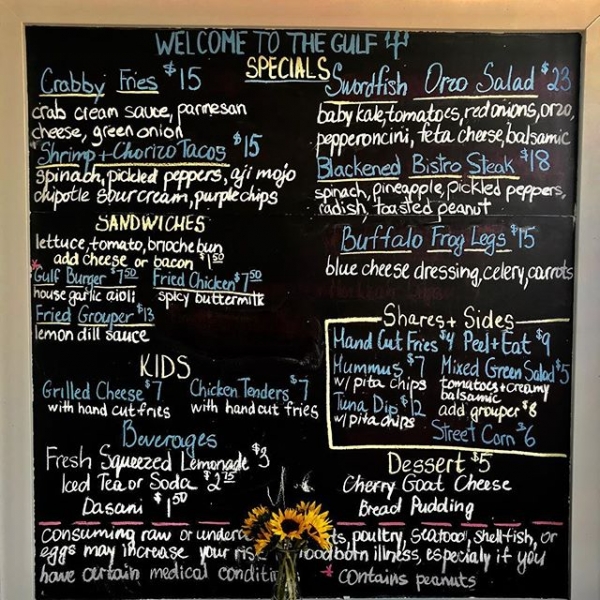 WELCOME TO THE GULF
SPECIALS
Crabby Fries $15
crab cream sauce, parmesan
cheese, green onion
Shrimp + Chorizo Tacos $15
spinach, pickled peppers, aji mojo
chipotle sour cream, purple chips
Swordfish Orzo Salad $23
baby kale, tomatoes, red onions, orzo,
pepperoncini, feta cheese, balsamic
Blackened Bistro Steak $18
spinach, pineapple, pickled peppers,
radish, toasted peanut
SANDWICHES
lettuce, tomato, brioche bun
add cheese or bacon $1.50
*Gulf Burger $7.50 Fried Chicken $7.50
house garlic aioli spicy buttermilk
Fried Grouper $13
lemon dill sauce
Buffalo Frog Legs $15
blue cheese dressing, celery, carrots
KIDS
Grilled Cheese $7 Chicken Tenders $7
with hand cut fries with hand cut fries
Shares + Sides
Hand Cut Fries $4 Peel + Eat $9
Hummus $7 Mixed Green Salad $5
w/ pita chips tomatoes + creamy
balsamic
Tuna Dip $12 add grouper $8
w/ pita chips
Street Corn $6
Beverages
Fresh Squeezed Lemonade $3
Iced Tea or Soda $2.75
Dasani $1.50
Dessert $5
Cherry Goat Cheese
Bread Pudding
consuming raw or underc ts, poultry, seafood, shellfish, or
eggs may increase your ris oodborn illness, especially if you
have certain medical conditi * contains peanuts